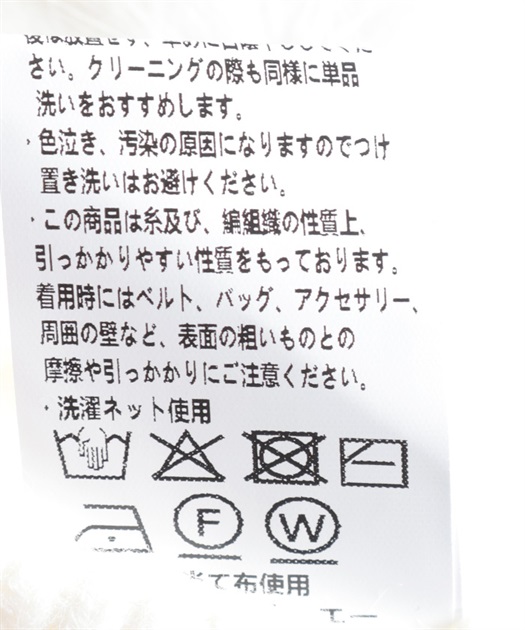 さい。クリーニングの際も同様に単品
洗いをおすすめします。
・色泣き、汚染の原因になりますのでつけ
置き洗いはお避けください。
・この商品は糸及び、編組織の性質上、
引っかかりやすい性質をもっております。
着用時にはベルト、バッグ、アクセサリー、
周囲の壁など、表面の粗いものとの
摩擦や引っかかりにご注意ください。
・洗濯ネット使用
F W
当て布使用